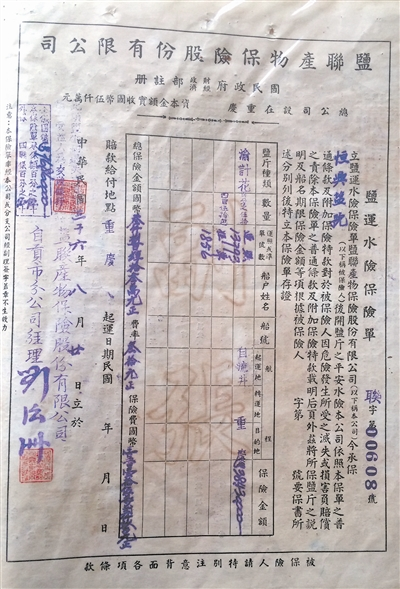 鹽聯產物保險股份有限公司
國民政府財政經濟部註册
資本金額實收國幣伍仟萬元
總公司設在重慶
鹽運水險保險單
聯字第00608號
立鹽運水險保險單鹽聯產物保險股份有限公司(以下稱本公司)今承保
(以下稱被保險人)後開鹽斤之平安水險本公司依照本保單之普
通條款及附加保險特款對於被保險人因危險發生所受之滅失或損害負賠償
之責除本保險單之普通條款及附加保險特款載明后頁外茲將所保鹽斤之說
明及船名期限保險金額等項根據被保險人 字第 號要保書所
述分别列後特立本保險單存證
鹽斤種類
數量
運照或運單號數
船户姓名
船號
航程
起運地
轉運地
目的地
保險金額
渝計花
1356
自流井
重慶
總保險金額國幣
費率
保險費國幣
賠款給付地點 重慶
起運日期民國 年 月 日
中華民國三十六年八月廿日立於
鹽聯產物保險股份有限公司
自貢市分公司經理
注意:本保險單非經本公司或分支公司經副理簽字蓋章不生效力
被保險人請特别注意背面各項條款